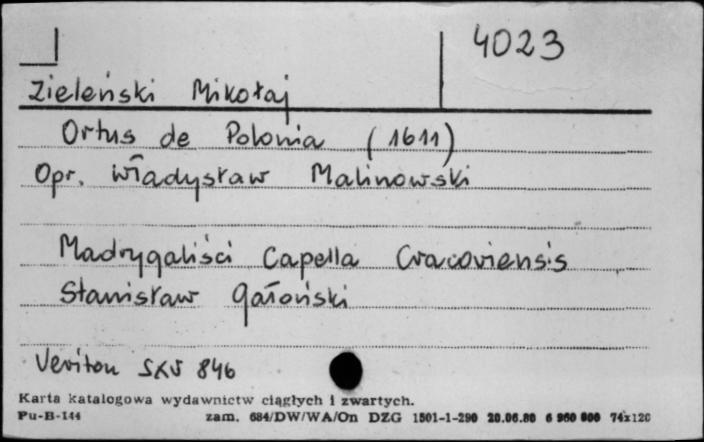 4023
Zieleński Mikołaj
Ortus de Polonia (1611)
Opr. Władysław Malinowski
Madrygaliści Capella Cracoviensis
Stanisław Gałoński
Veriton SXV 846
Karta katalogowa wydawnictw ciągłych i zwartych.
Pu-B-144 zam. 684/DW/WA/On DZG 1501-1-290 20.06.80 6 960 000 74x120